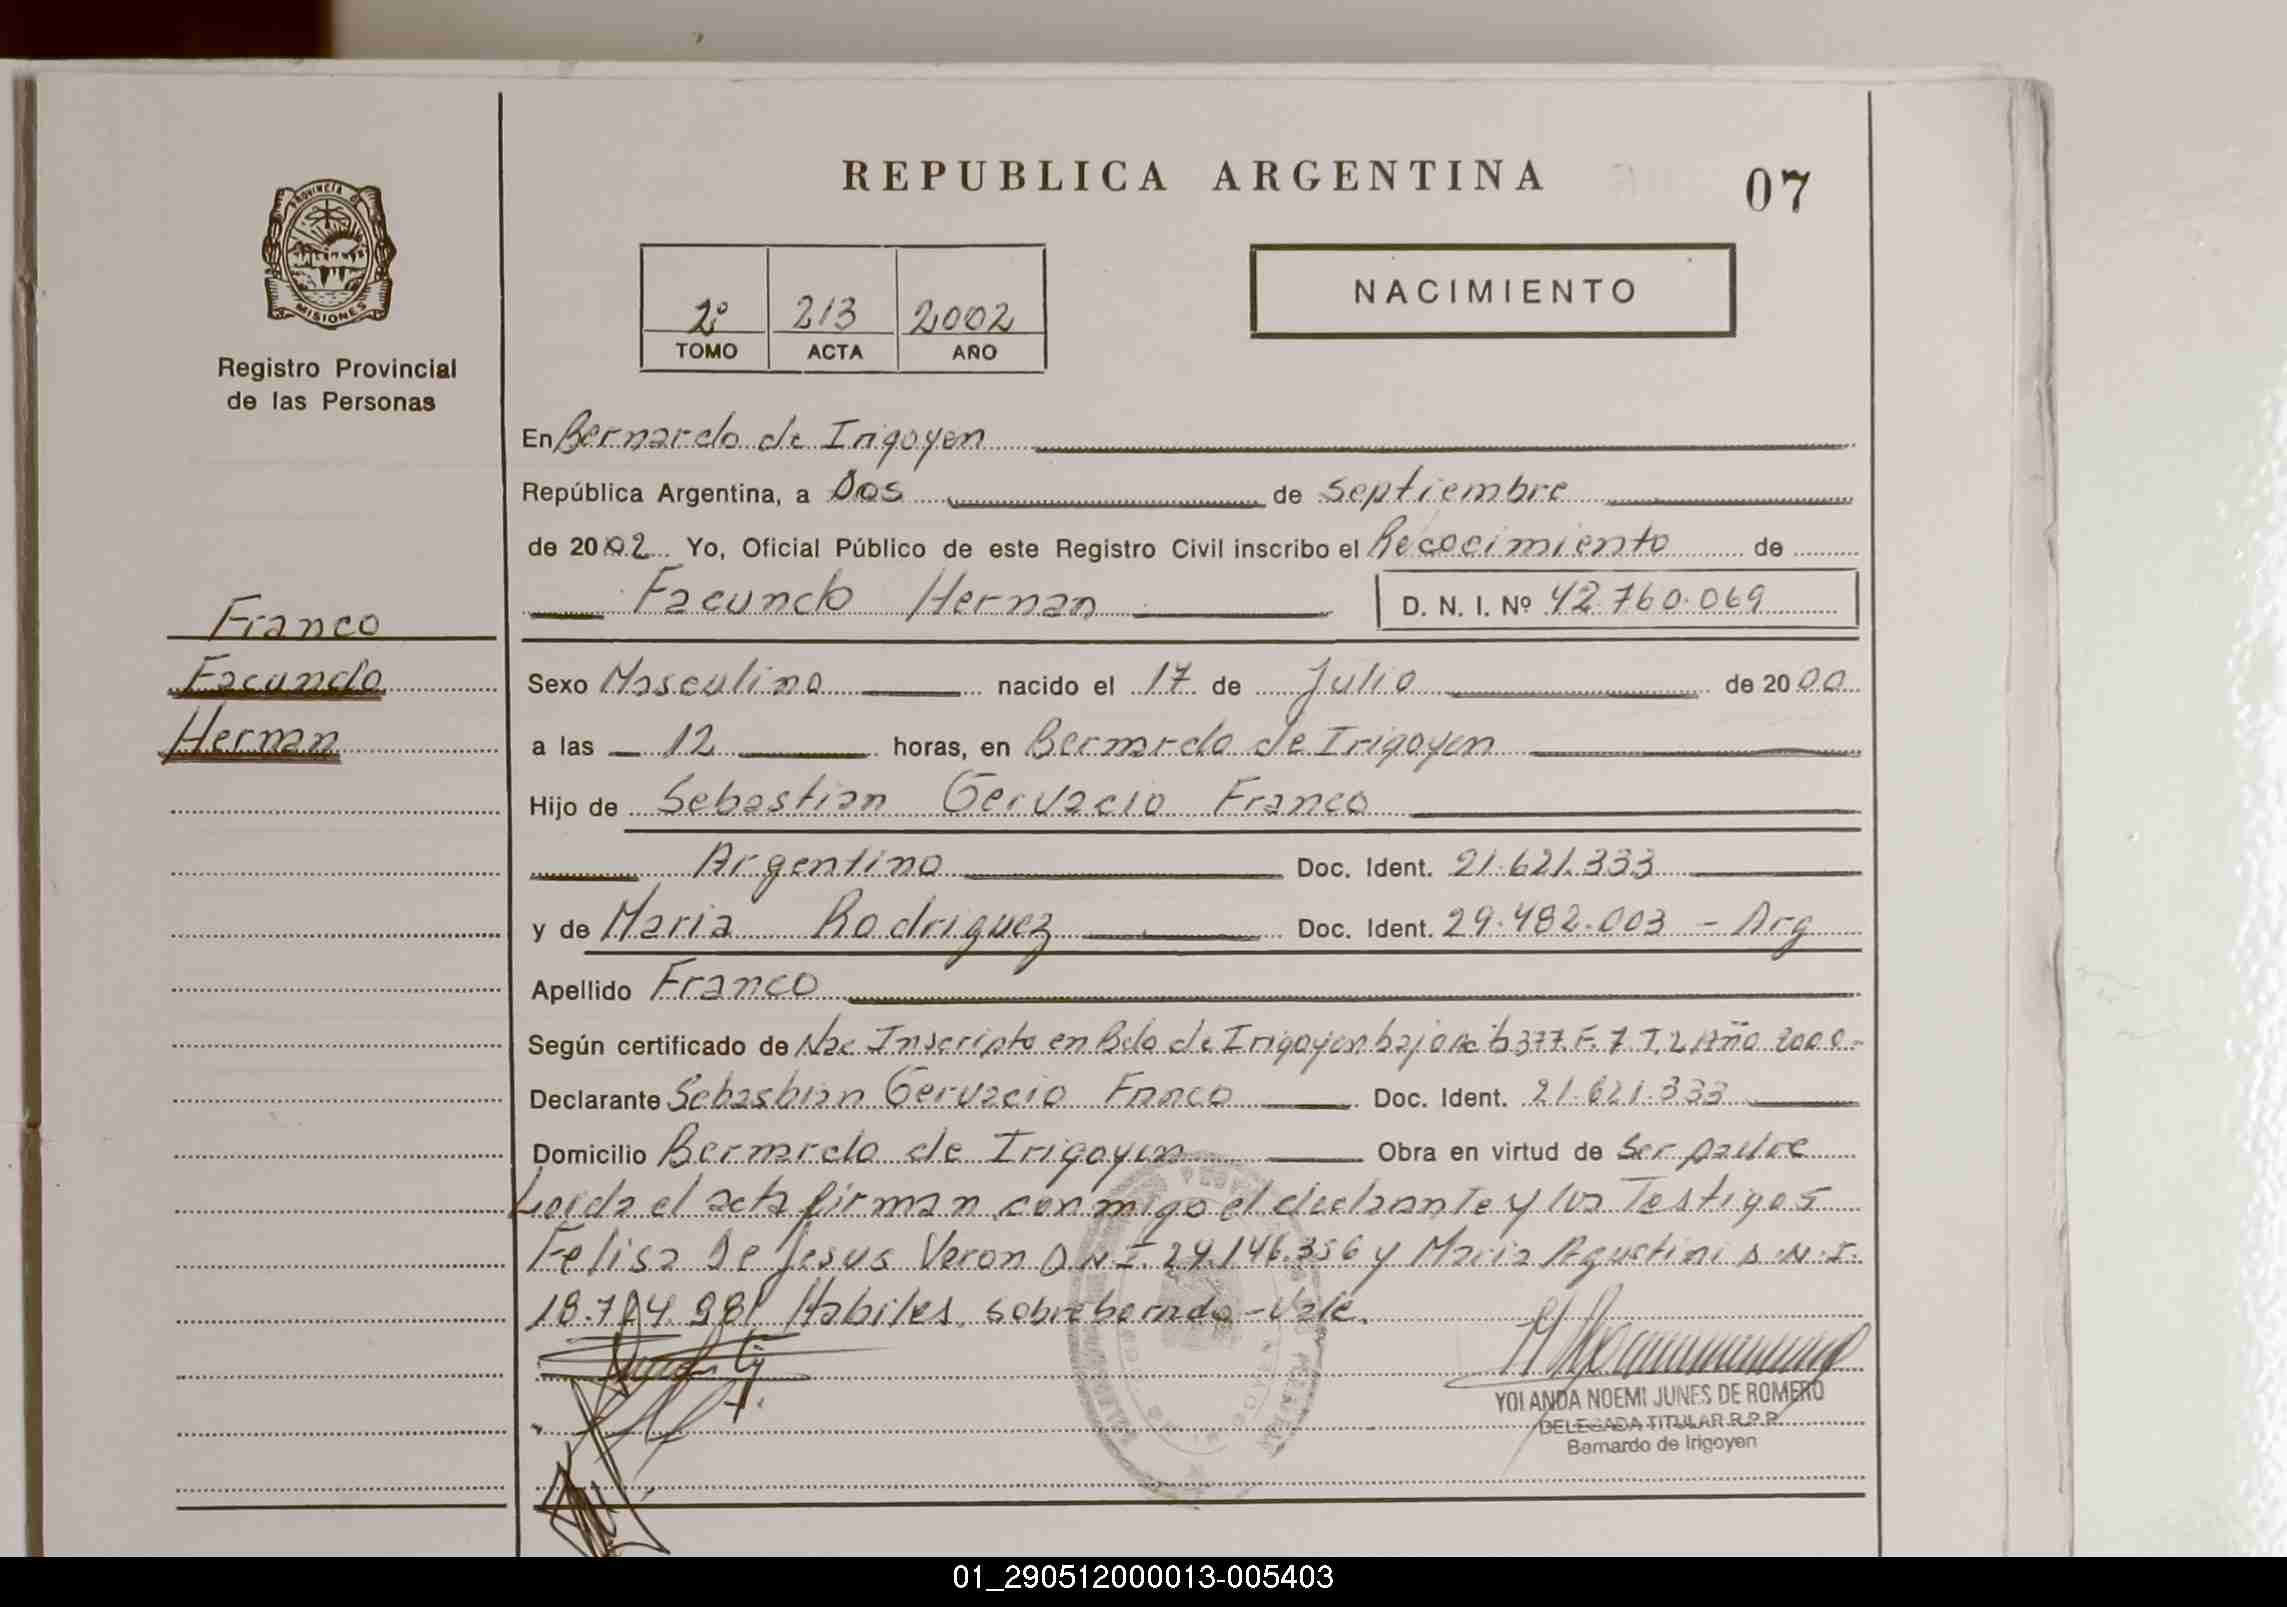 REPUBLICA ARGENTINA
07
PROVINCIA DE
MISIONES
Registro Provincial
de las Personas
2º 213 2002
TOMO ACTA AÑO
NACIMIENTO
En Bernardo de Irigoyen
República Argentina, a Dos de septiembre
de 2002 Yo, Oficial Público de este Registro Civil inscribo el Recocimiento de
Facundo Hernan D. N. I. Nº 42.760.069
Franco
Facundo
Hernan
Sexo Masculino nacido el 17 de Julio de 2000
a las 12 horas, en Bernardo de Irigoyen
Hijo de Sebastian Gervacio Franco
Argentino Doc. Ident. 21.621.333
y de Maria Rodriguez Doc. Ident. 29.482.003 - Arg
Apellido Franco
Según certificado de Nac Inscripto en Bdo de Irigoyen bajo 377. F. 7 T. 2 Año 2000-
Declarante Sebastian Gervacio Franco Doc. Ident. 21.621.333
Domicilio Bernardo de Irigoyen Obra en virtud de Ser padre
Leida el acta firman conmigo el declarante y los Testigos
Felisa De Jesus Veron D.N.I. 29.146.356 y Maria Agustini D.N.I.
18.704.981 Habiles. sobreborrado - vale.
YOLANDA NOEMI JUNES DE ROMERO
DELEGADA TITULAR R.P.P.
Bernardo de Irigoyen
01_290512000013-005403